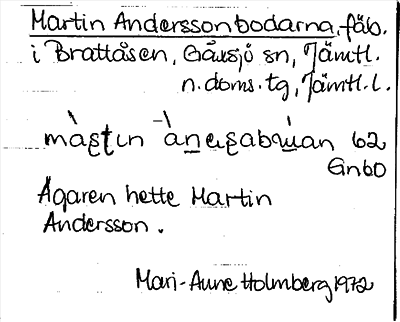 Martin Anderssonbodarna, fäb.
i Brattåsen, Gåxsjö sn, Jämtl.
n. doms. tg, Jämtl. l.
62
Gnbo
Ägaren hette Martin
Andersson.
Mari-Anne Holmberg 1972